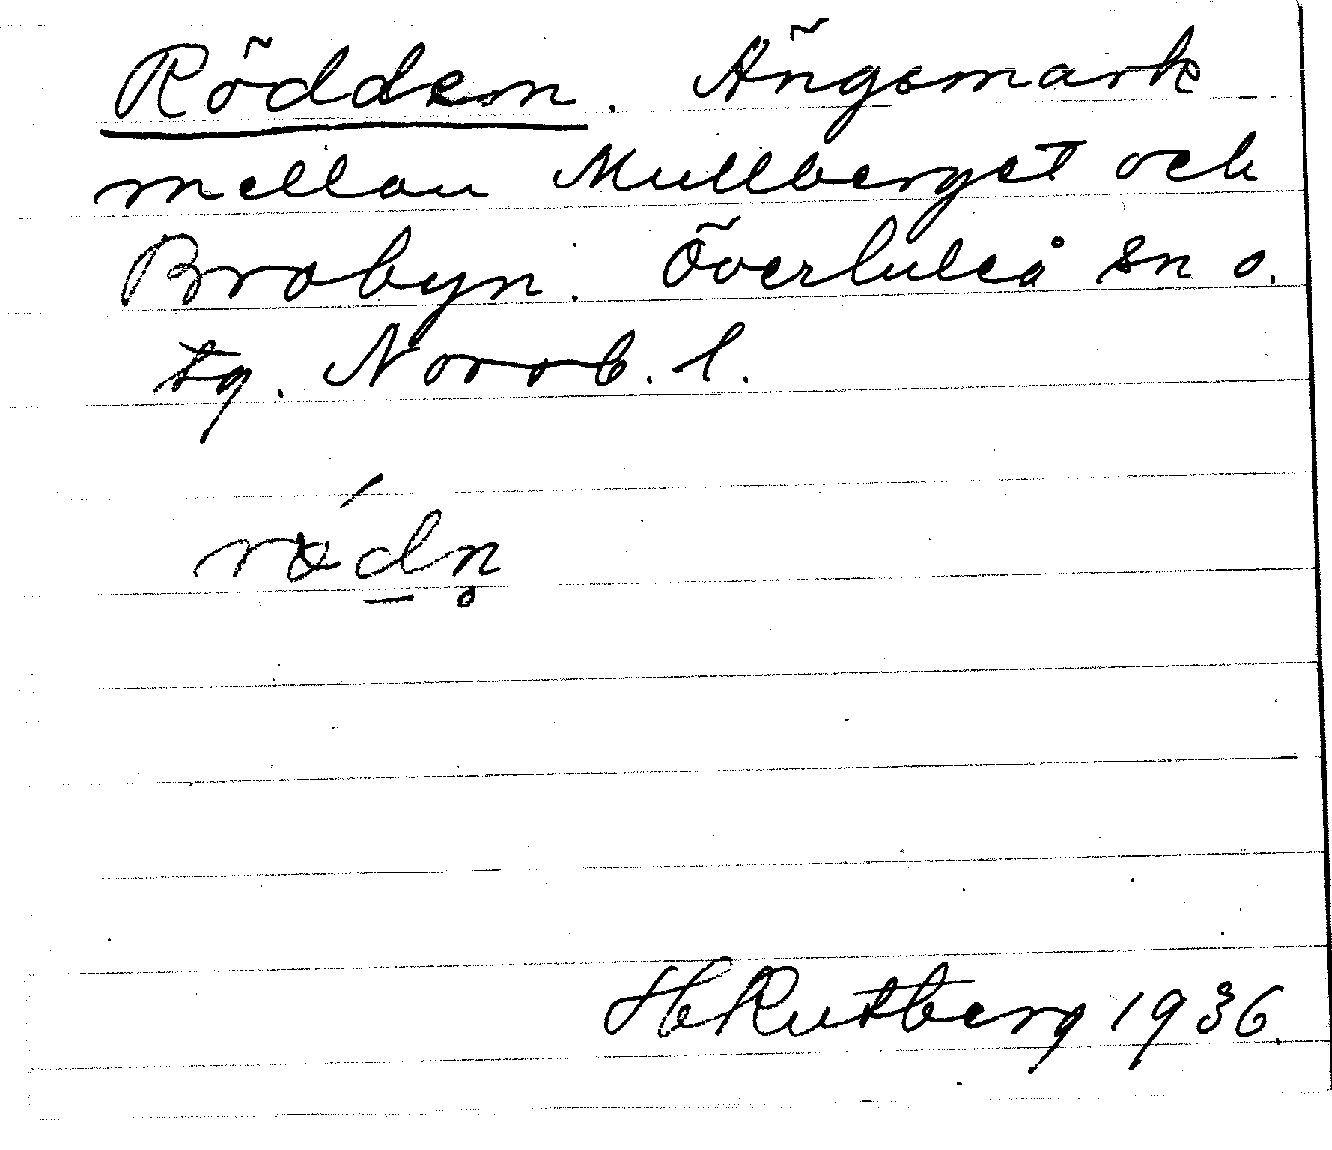 Rödden. Ängsmark
mellan Mullberget och
Brobyn. Överluleå sn o.
tg. Norrb. l.
rödn̥
H Rutberg 1936.